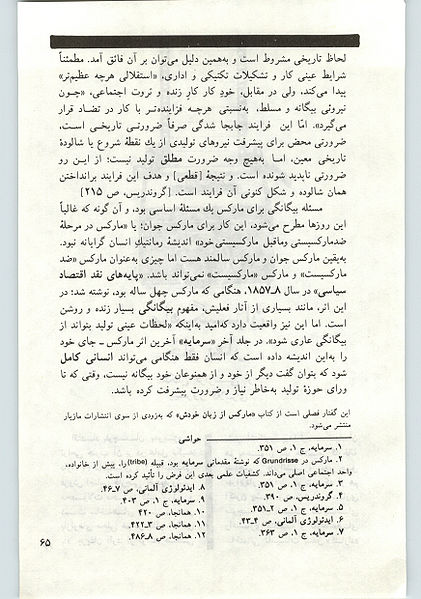 لحاظ تاریخی مشروط است و به‌همین دلیل می‌توان بر آن فائق آمد. مطمئناً
شرایط عینی کار و تشکیلات تکنیکی و اداری، «استقلالی هرچه عظیم‌تر»
پیدا می‌کند، ولی در مقابل، خودِ کارِ کار زنده و ثروت اجتماعی، «چون
نیروئی بیگانه و مسلط، به‌نسبتی هرچه فزاینده‌تر با کار در تضاد قرار
می‌گیرد». امّا این فرایند جابجا شدگی صرفاً ضرورتی تاریخی است،
ضرورتی محض برای پیشرفت نیروهای تولیدی از یك نقطهٔ شروع یا شالودهٔ
تاریخی معین، امـا به‌هیچ وجه ضرورت مطلق تولید نیست؛ از این رو
ضرورتی ناپدید شونده است. و نتیجهٔ [قطعی] و هدف این فرایند برانداختن
همان شالوده و شکل کنونی آن فرایند است. [گروندریس، ص ۲۱۵]
مسئله بیگانگی برای مارکس یك مسئلهٔ اساسی بود، و آن گونه که غالباً
این روزها مطرح می‌شود، این کار برای مارکس جوان؛ یا «مارکس در مرحلهٔ
ضدمارکسیستی وماقبل مارکسیستی خود» اندیشهٔ رمانتیكِ انسان گرایانه نبود.
به‌یقین مارکس جوان و مارکس سالمند هست اما چیزی به‌عنوان مارکس «ضد
مارکسیست» و مارکس «مارکسیست» نمی‌تواند باشد. «پایه‌های نقد اقتصاد
سیاسی» در سال ۸ـ۱۸۵۷، هنگامی که مارکس چهل ساله بود، نوشته شد؛ در
این اثر، مانند بسیاری از آثار قبلیش، مفهوم بیگانگی بسیار زنده و روشن
است. اما این نیز واقعیت دارد که‌امید به‌اینکه «لحظات عینی تولید بتواند از
بیگانگی عاری شود». در جلد آخر «سرمایه» آخرین اثر مارکس ـ جای خود
را به‌این اندیشه داده است که انسان فقط هنگامی می‌تواند انسانی کامل
شود که بتوان گفت دیگر از خود و از همنوعان خود بیگانه نیست، وقتی که تا
ورای حوزهٔ تولید به‌خاطر نیاز و ضرورت پیشرفت کرده باشد.
این گفتار فصلی است از کتاب «مارکس از زبان خودش» که به‌زودی از سوی انتشارات مازیار
منتشر می‌شود.
حواشی
۱. سرمایه، ج ۱، ص ۳۵۱.
۲. مارکس در Grundrisse که نوشتهٔ مقدماتی سرمایه بود، قبیله (tribe) را، پیش از خانواده،
واحد اجتماعی اصلی می‌داند. کشفیات علمی بعدی این فرض را تأئید کرده است.
۳. سرمایه، ج ۱، ص ۳۵۱.
۴. گروندریس، ص ۳۹۰.
۵. سرمایه، ج ۱، ص ۲ـ۳۵۱.
۶. ایدئولوژی آلمانی، ص ۴ـ۴۳.
۷. سرمایه، ج ۱، ص ۳۶۳.
۸. ایدئولوژی آلمانی، ص ۷ـ۴۶.
۹. سرمایه، ج ۱، ص ۴۰۳.
۱۰. همانجا، ص ۴۲۰.
۱۱. همانجا، ص ۳ـ۴۲۲.
۱۲. همانجا، ص ۸ـ۴۸۶.
۶۵